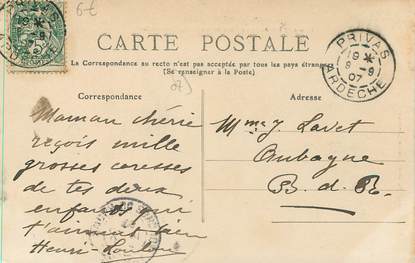 6-€
CARTE POSTALE
La Correspondance au recto n'est pas acceptée par tous les pays étrangers
(Se renseigner à la Poste)
Correspondance
Adresse
PRIVAS
19 *
8 - 9
07
ARDÈCHE
07
Maman chérie
reçois mille
grosses caresses
de tes deux
enfants qui
t'aiment bien
Henri-Loulou
Mme J. Lavet
Aubagne
B. d. R.